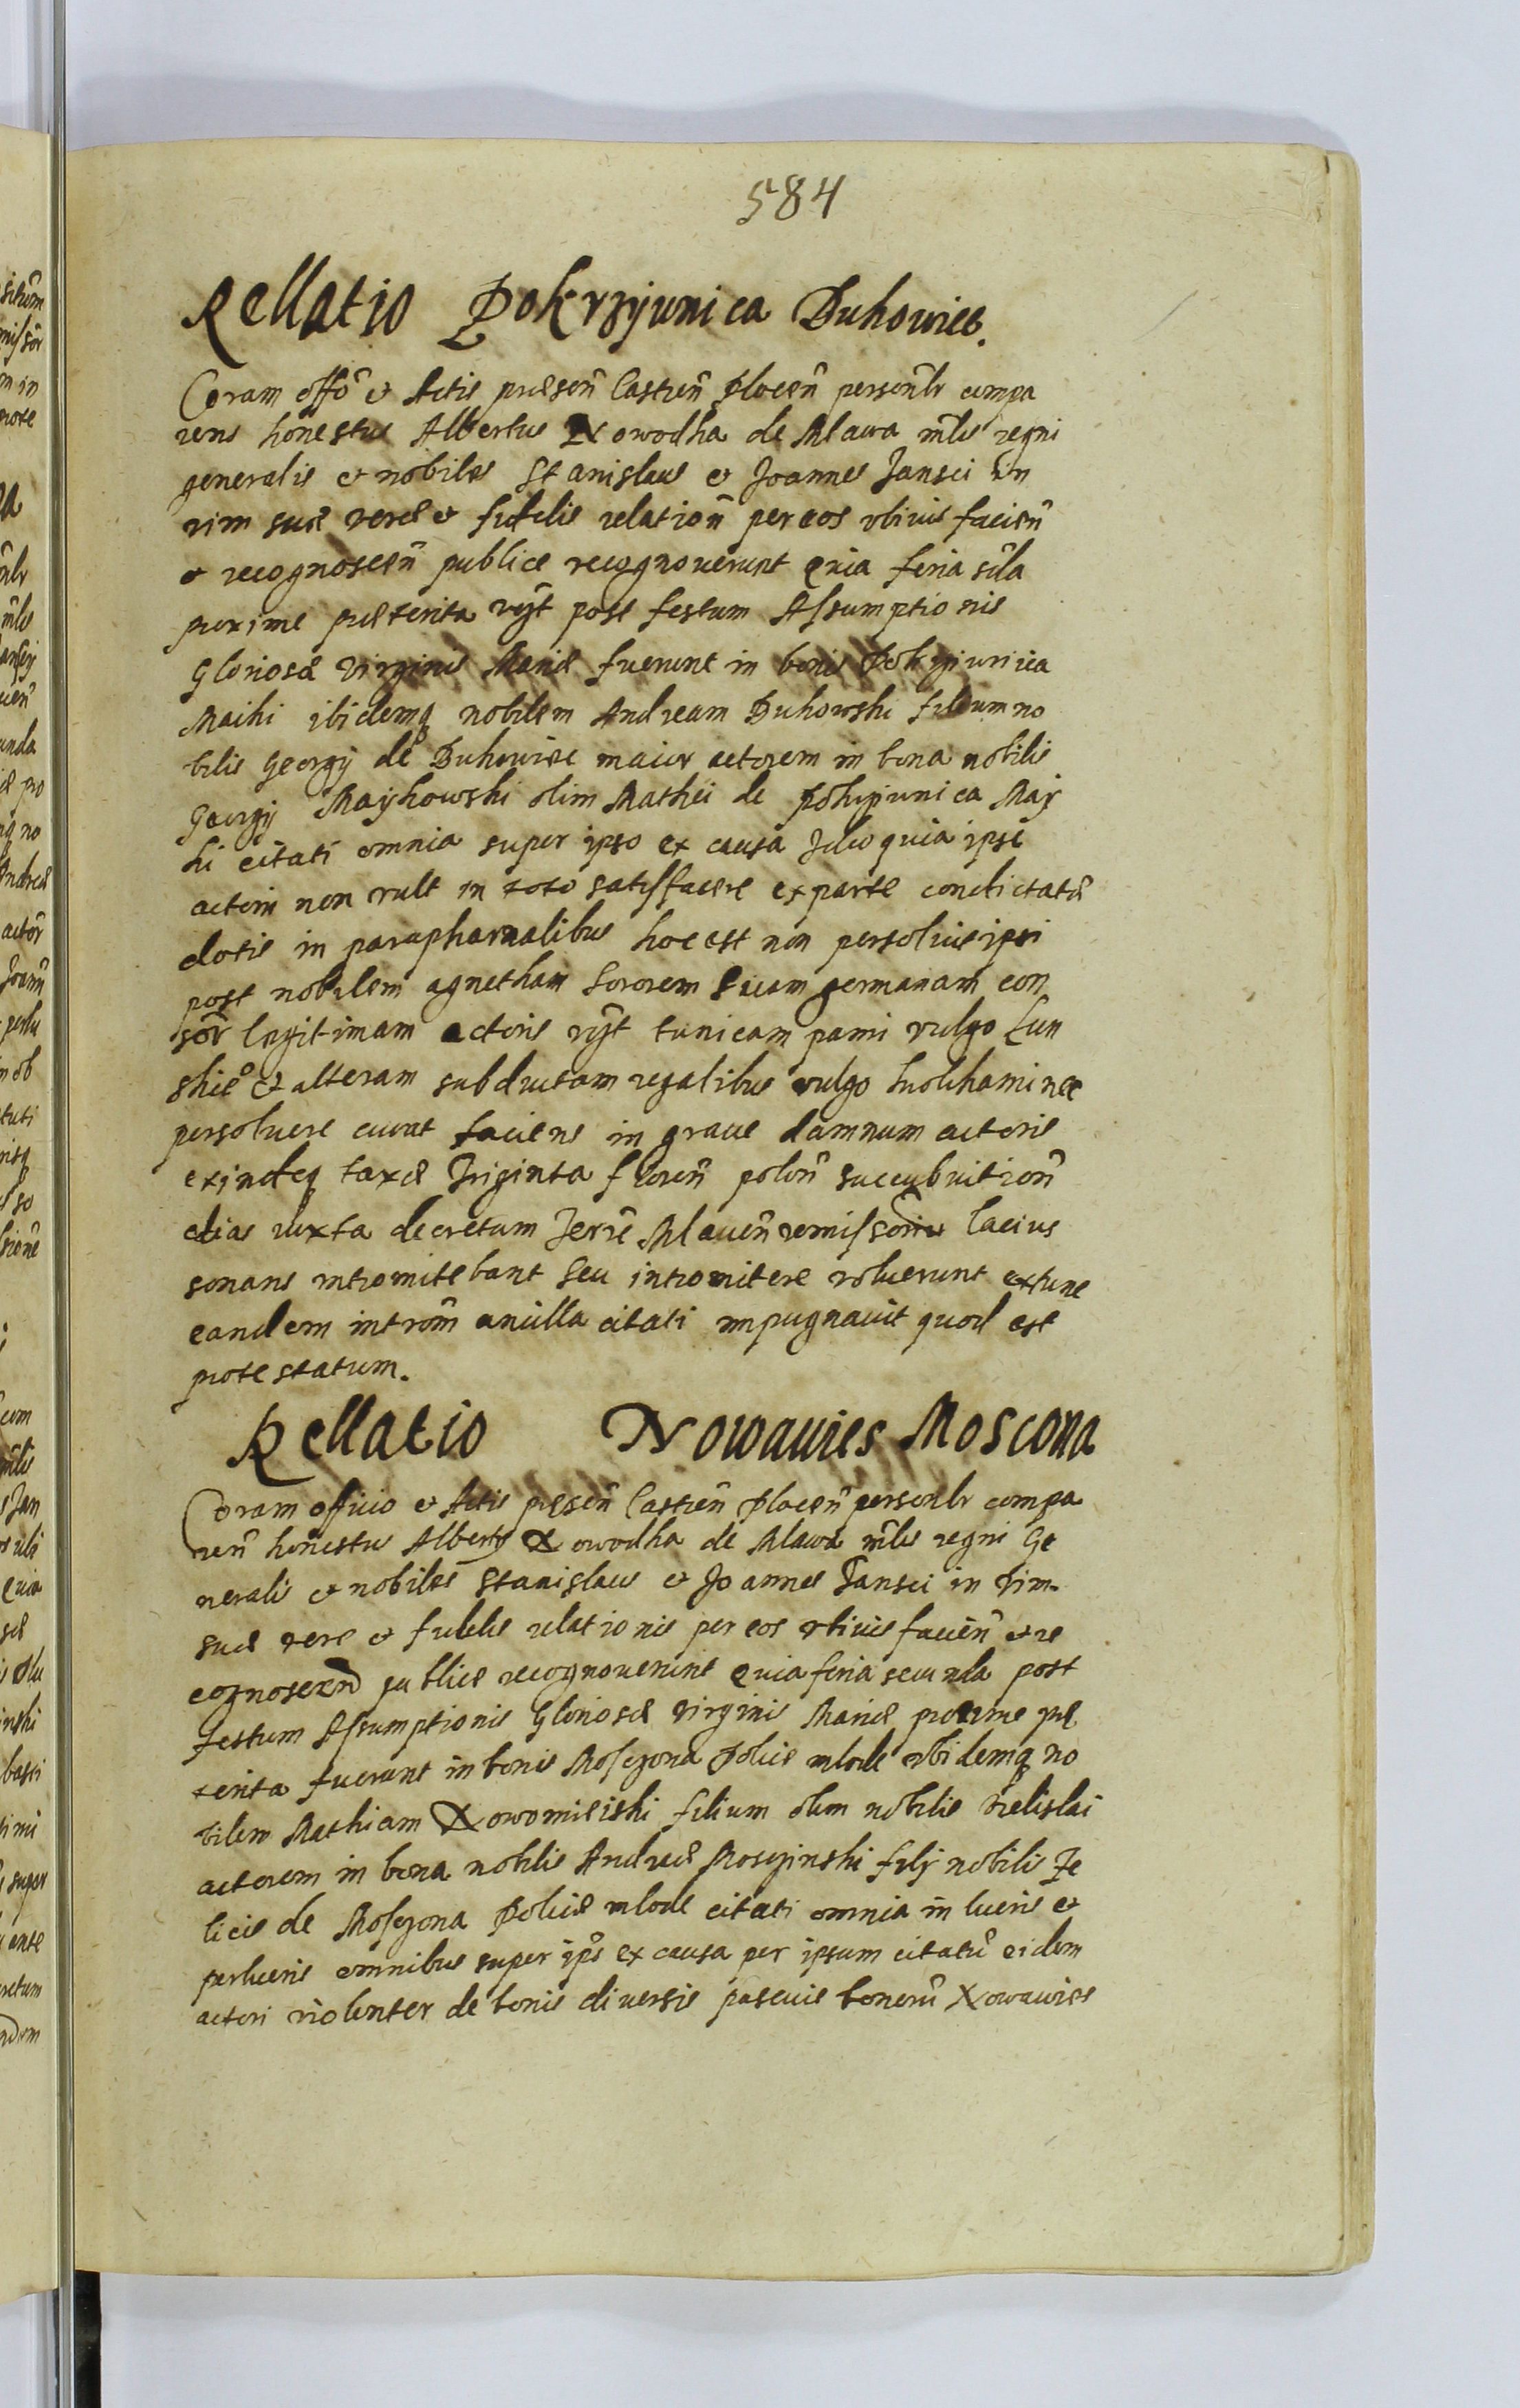 584
Rellatio Pokrzywnica Bukowiec.
Coram offõ et Actis præsen̄ Castren̄ Plocen̄ personlr compa
rens honestus Albertus Nowodka de Mlawa mlis regni
generalis et nobiles Stanislaus et Joannes Jansci in
vim suæ veræ et fidelis relation̄ per eos vtrius facien̄
et recognoscen̄ publice recognouerunt quia feria scda
proxime præterita vizt post festum Assumptionis
Gloriosæ Virginis Mariæ fuerunt in bonis Pokrziwnica
Maiki ibidemq nobilem Andream Bukowski filium no
bilis Georgij de Bukowiec maior actorem in bona nobilis
Georgij Maykowski olim Mathei de Pokrziwnica May
ki citati omnia super ipso ex causa Ideo quia ipse
actori non vult in toto satisfacere ex parte condictatæ
dotis in paraphernalibus hoc est non persoluit ipsi
post nobilem agnetham Sororem Suam germanam con
sor legitimam actoris vizt tunicam panni vulgo Lun
skiego et alteram subductam regalibus vulgo kuolikami nec
persoluere curat faciens in graue damnum actoris
exindeq taxæ Triginta floren̄ polon̄ succubuition̄
dias iuxta decretum Terrē Mlauen̄ remissoriu Lacius
sonans intromitebant Seu intromitere voluerunt extunc
eandem introm̄ ancilla citati impugnauit quod est
protestatum.
Rellatio Nowawies Moscona
Coram officio et Actis præsen̄ Castren̄ Plocen̄ personlr compa
ren̄ honestus Albertus Nowodka de Mlawa mlis regni Ge
neralis et nobiles Stanislaus et Joannes Jansci in vim
suæ vere et fidelis relationis per eos vtrius facien̄ et re
cognoscen̄ publice recognouerunt quia feria secunda post
festum Assumptionis Gloriosæ Virginis Mariæ proxime præ
terita fuerunt in bonis Moszzona Policie mlode ibidemq no
bilem Mathiam Nowomieiski filium olim nobilis Vielislai
actorem in bona nobilis Andreæ Moszzinski filij nobilis Fe
licis de Moszzona Policie mlode citati omnia in lucris et
perlucris omnibus super ipso ex causa per ipsum citatū eidem
actori violenter de bonis diversis pascuis bonorū Nowawies